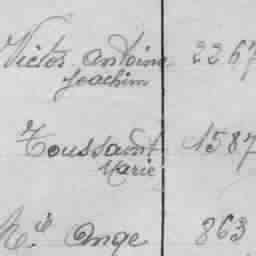 Victor Antoine 2267
Joachim
Toussaint 1587
Marie
M.ie Ange 863